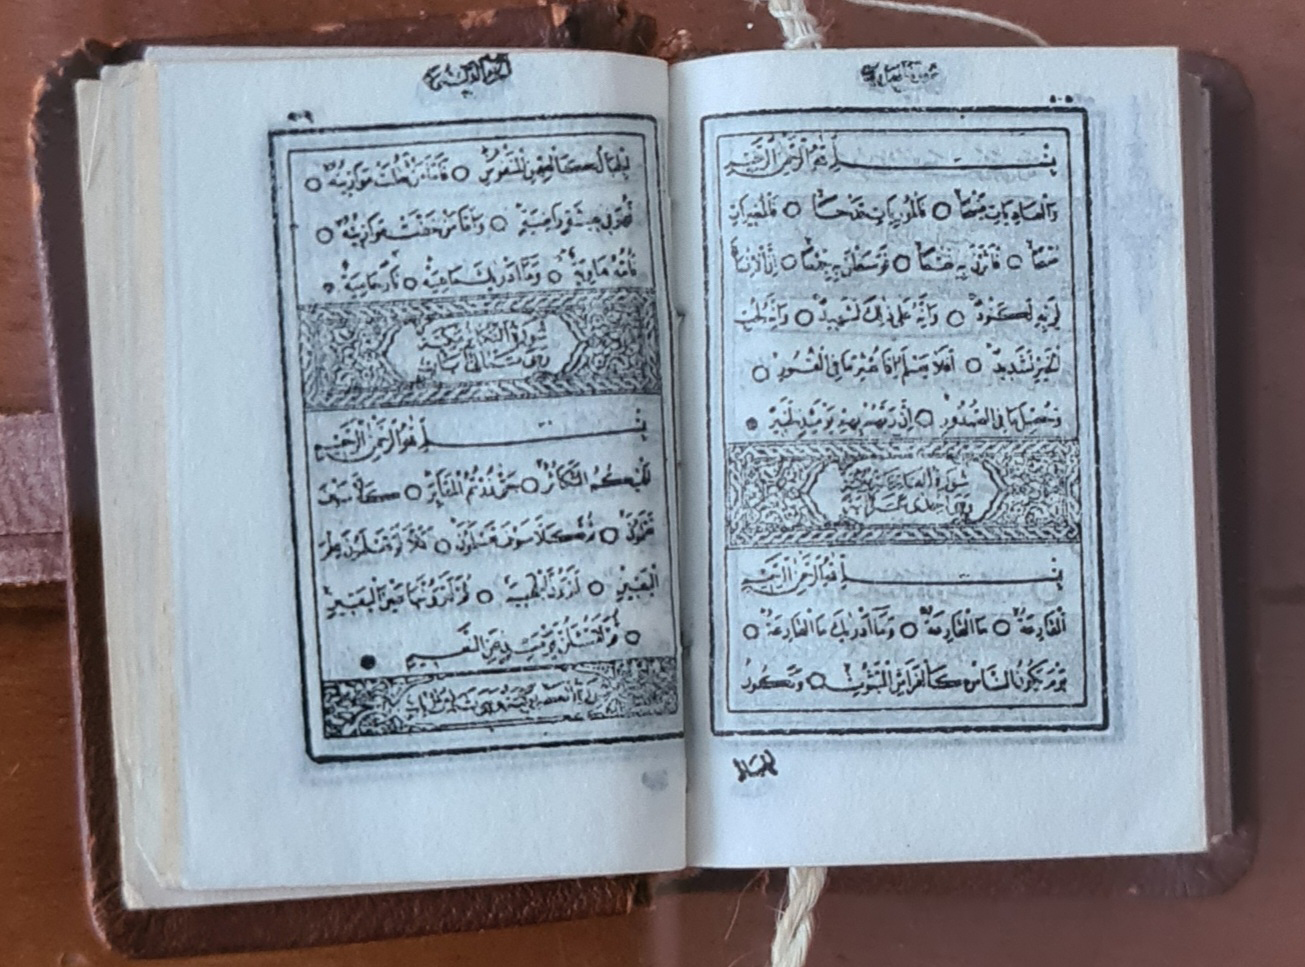 ٥٠٥
بسم الله الرحمن الرحيم
والعاديات ضبحا ○ فالموريات قدحا ○ فالمغيرات
صبحا ○ فاثرن به نقعا ○ فوسطن به جمعا ○ ان الانسان
لربه لكنود ○ وانه على ذلك لشهيد ○ وانه لحب
الخير لشديد ○ افلا يعلم اذا بعثر ما في القبور ○
وحصل ما في الصدور ○ ان ربهم بهم يومئذ لخبير
سورة القارعة مكية
وهي احدى عشر اية
بسم الله الرحمن الرحيم
القارعة ○ ما القارعة ○ وما ادريك ما القارعة ○
يوم يكون الناس كالفراش المبثوث ○ وتكون
الجبال
الجبال كالعهن المنفوش ○ فاما من ثقلت موازينه ○
فهو في عيشة راضية ○ واما من خفت موازينه ○
فامه هاوية ○ وما ادريك ماهية ○ نار حامية
سورة التكاثر مكية
وهي ثماني ايات
بسم الله الرحمن الرحيم
الهيكم التكاثر ○ حتى زرتم المقابر ○ كلا سوف
تعلمون ○ ثم كلا سوف تعلمون ○ كلا لو تعلمون علم
اليقين ○ لترون الجحيم ○ ثم لترونها عين اليقين
○ ثم لتسئلن يومئذ عن النعيم
سورة العصر مكية وهي ثلاث ايات